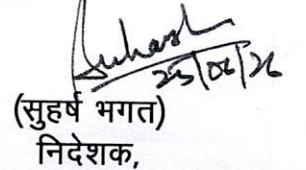 Suhash
25/06/26
(सुहर्ष भगत)
निदेशक,